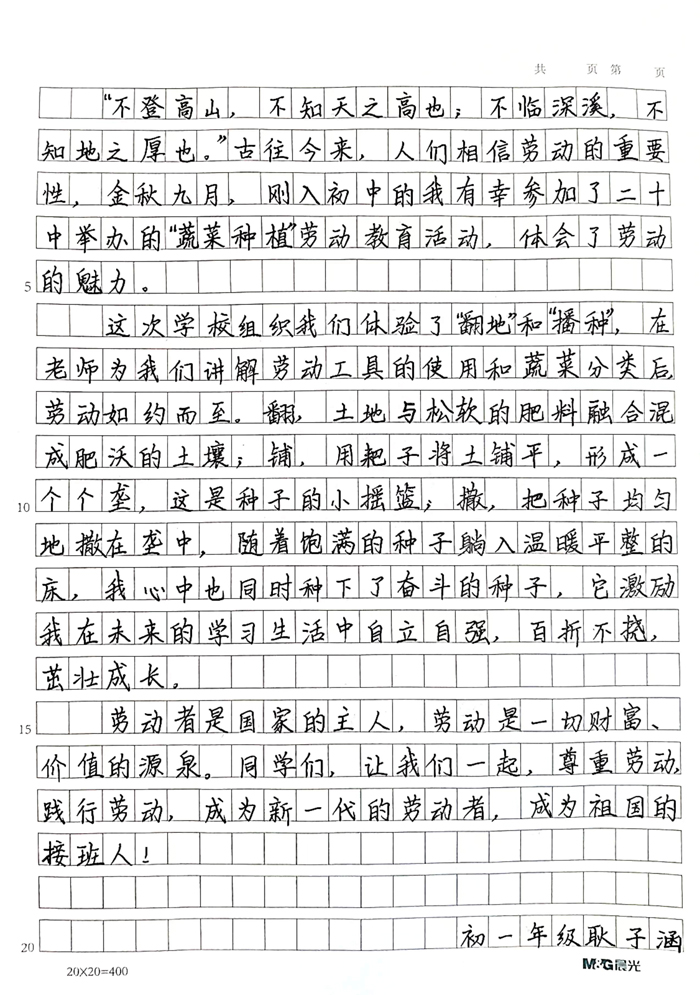 共 页 第 页
“不登高山，不知天之高也；不临深溪，不
知地之厚也。”古往今来，人们相信劳动的重要
性，金秋九月，刚入初中的我有幸参加了二十
中举办的“蔬菜种植”劳动教育活动，体会了劳动
5 的魅力。
这次学校组织我们体验了“翻地”和“播种”，在
老师为我们讲解劳动工具的使用和蔬菜分类后，
劳动如约而至。翻，土地与松软的肥料融合混
成肥沃的土壤；铺，用耙子将土铺平，形成一
10 个个垄，这是种子的小摇篮；撒，把种子均匀
地撒在垄中，随着饱满的种子躺入温暖平整的
床，我心中也同时种下了奋斗的种子，它激励
我在未来的学习生活中自立自强，百折不挠，
茁壮成长。
15 劳动者是国家的主人，劳动是一切财富、
价值的源泉。同学们，让我们一起，尊重劳动，
践行劳动，成为新一代的劳动者，成为祖国的
接班人！
20 初一年级耿子涵
20×20=400 M&G晨光